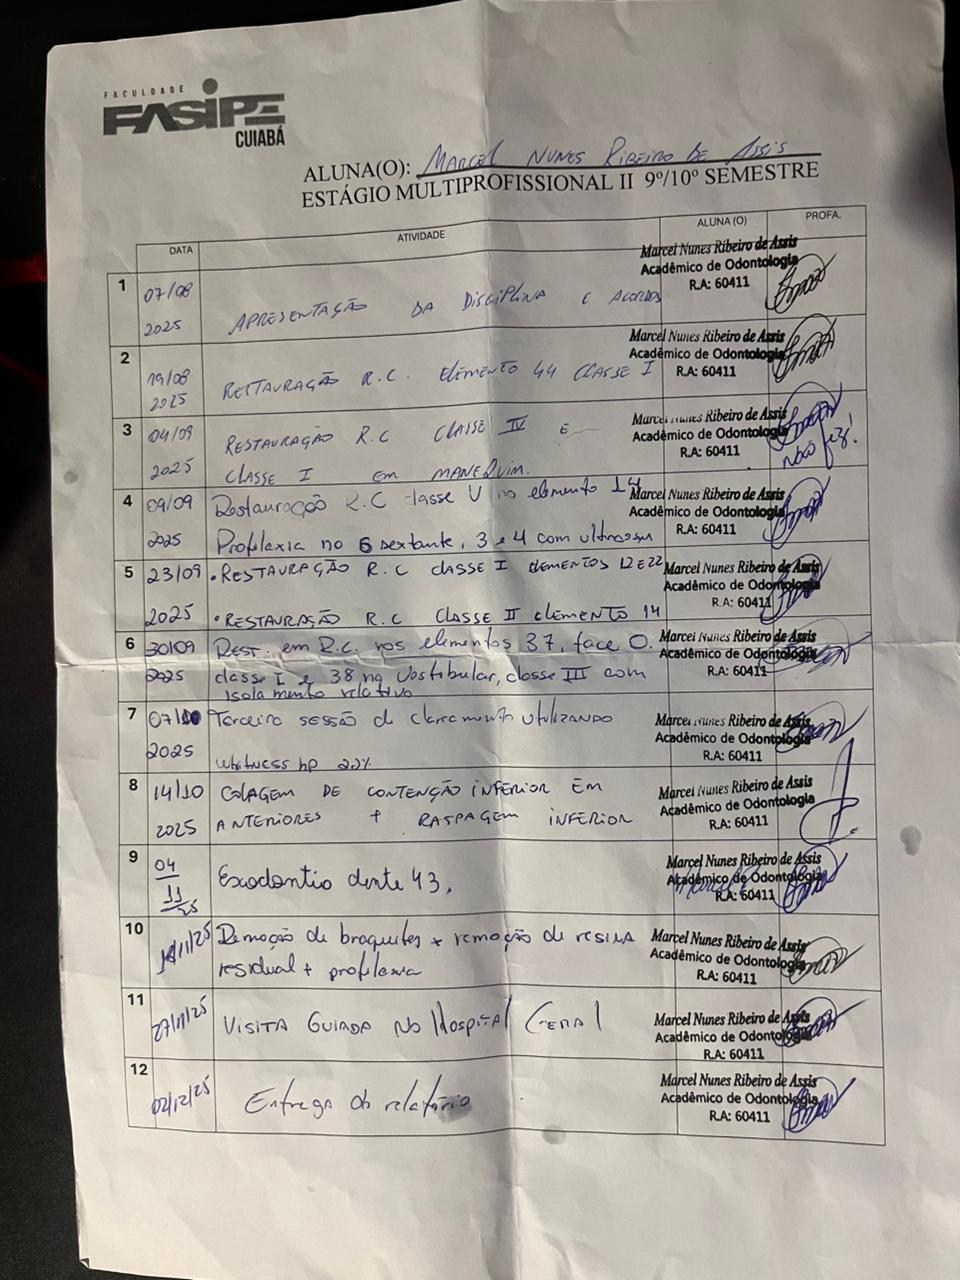 FACULDADE
FASIPE
CUIABÁ
ALUNA(O): MARCEL NUNES RIBEIRO DE ASSIS
ESTÁGIO MULTIPROFISSIONAL II 9º/10º SEMESTRE
DATA ATIVIDADE ALUNA (O) PROFA.
1 07/08 2025 APRESENTAÇÃO DA DISCIPLINA E ACORDOS
Marcel Nunes Ribeiro de Assis
Acadêmico de Odontologia
R.A: 60411
2 19/08 2025 RESTAURAÇÃO R.C. ELEMENTO 44 CLASSE I
Marcel Nunes Ribeiro de Assis
Acadêmico de Odontologia
R.A: 60411
3 04/09 RESTAURAÇÃO R.C CLASSE IV E
2025 CLASSE I EM MANEQUIM.
Marcel Nunes Ribeiro de Assis
Acadêmico de Odontologia
R.A: 60411
não fez!
4 09/09 Restauração R.C classe V no elemento 14
2025 Profilaxia no 6 sextante, 3 e 4 com ultrassu
Marcel Nunes Ribeiro de Assis
Acadêmico de Odontologia
R.A: 60411
5 23/09 • RESTAURAÇÃO R.C CLASSE I ELEMENTOS 12 E 22
2025 • RESTAURAÇÃO R.C CLASSE II ELEMENTO 14
Marcel Nunes Ribeiro de Assis
Acadêmico de Odontologia
R.A: 60411
6 30/09 REST. em R.C. nos elementos 37, face O.
2025 classe I e 38 na Vestibular, classe III com
isolamento relativo
Marcel Nunes Ribeiro de Assis
Acadêmico de Odontologia
R.A: 60411
7 07/10 Terceira sessão de claramento utilizando
2025 whitness hp 22%
Marcel Nunes Ribeiro de Assis
Acadêmico de Odontologia
R.A: 60411
8 14/10 COLAGEM DE CONTENÇÃO INFERIOR EM
2025 ANTERIORES + RASPAGEM INFERIOR
Marcel Nunes Ribeiro de Assis
Acadêmico de Odontologia
R.A: 60411
9 04/11/25 Exodontia dente 43.
Marcel Nunes Ribeiro de Assis
Acadêmico de Odontologia
R.A: 60411
10 /11/25 Remoção de braquetes + remoção de resina
residual + profilaxia
Marcel Nunes Ribeiro de Assis
Acadêmico de Odontologia
R.A: 60411
11 27/11/25 VISITA GUIADA NO HOSPITAL GERAL
Marcel Nunes Ribeiro de Assis
Acadêmico de Odontologia
R.A: 60411
12 02/12/25 Entrega do relatório
Marcel Nunes Ribeiro de Assis
Acadêmico de Odontologia
R.A: 60411